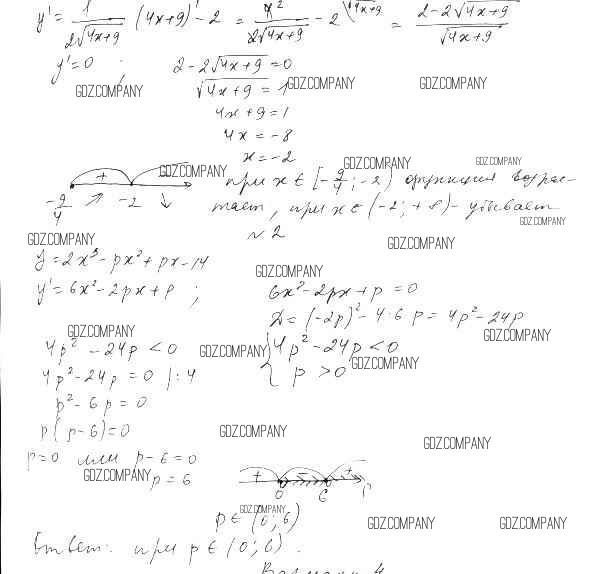 y' = 1/(2√(4x+9)) (4x+9)' - 2 = 4/(2√(4x+9)) - 2 = (2-2√(4x+9))/√(4x+9)
y'=0 ; 2-2√(4x+9)=0
GDZ.COMPANY √(4x+9) = 1 GDZ.COMPANY GDZ.COMPANY
4x+9=1
4x=-8
x=-2
GDZ.COMPANY GDZ.COMPANY GDZ.COMPANY
+ -9/4 ↗ -2 ↘
при x∈[-9/4; -2) функция возрас-
тает, при x∈(-2; +∞) - убывает
GDZ.COMPANY
GDZ.COMPANY №2 GDZ.COMPANY
y=2x³-px²+px-14
GDZ.COMPANY
y'=6x²-2px+p ; 6x²-2px+p=0
D=(-2p)²-4·6p=4p²-24p
GDZ.COMPANY GDZ.COMPANY
4p²-24p<0 GDZ.COMPANY { 4p²-24p<0
4p²-24p=0 |:4 p>0 GDZ.COMPANY
p²-6p=0
p(p-6)=0 GDZ.COMPANY GDZ.COMPANY
p=0 или p-6=0
GDZ.COMPANY p=6
+ - + 0 6 p
GDZ.COMPANY
p∈(0;6) GDZ.COMPANY GDZ.COMPANY
Ответ: при p∈(0;6).
Вариант 4